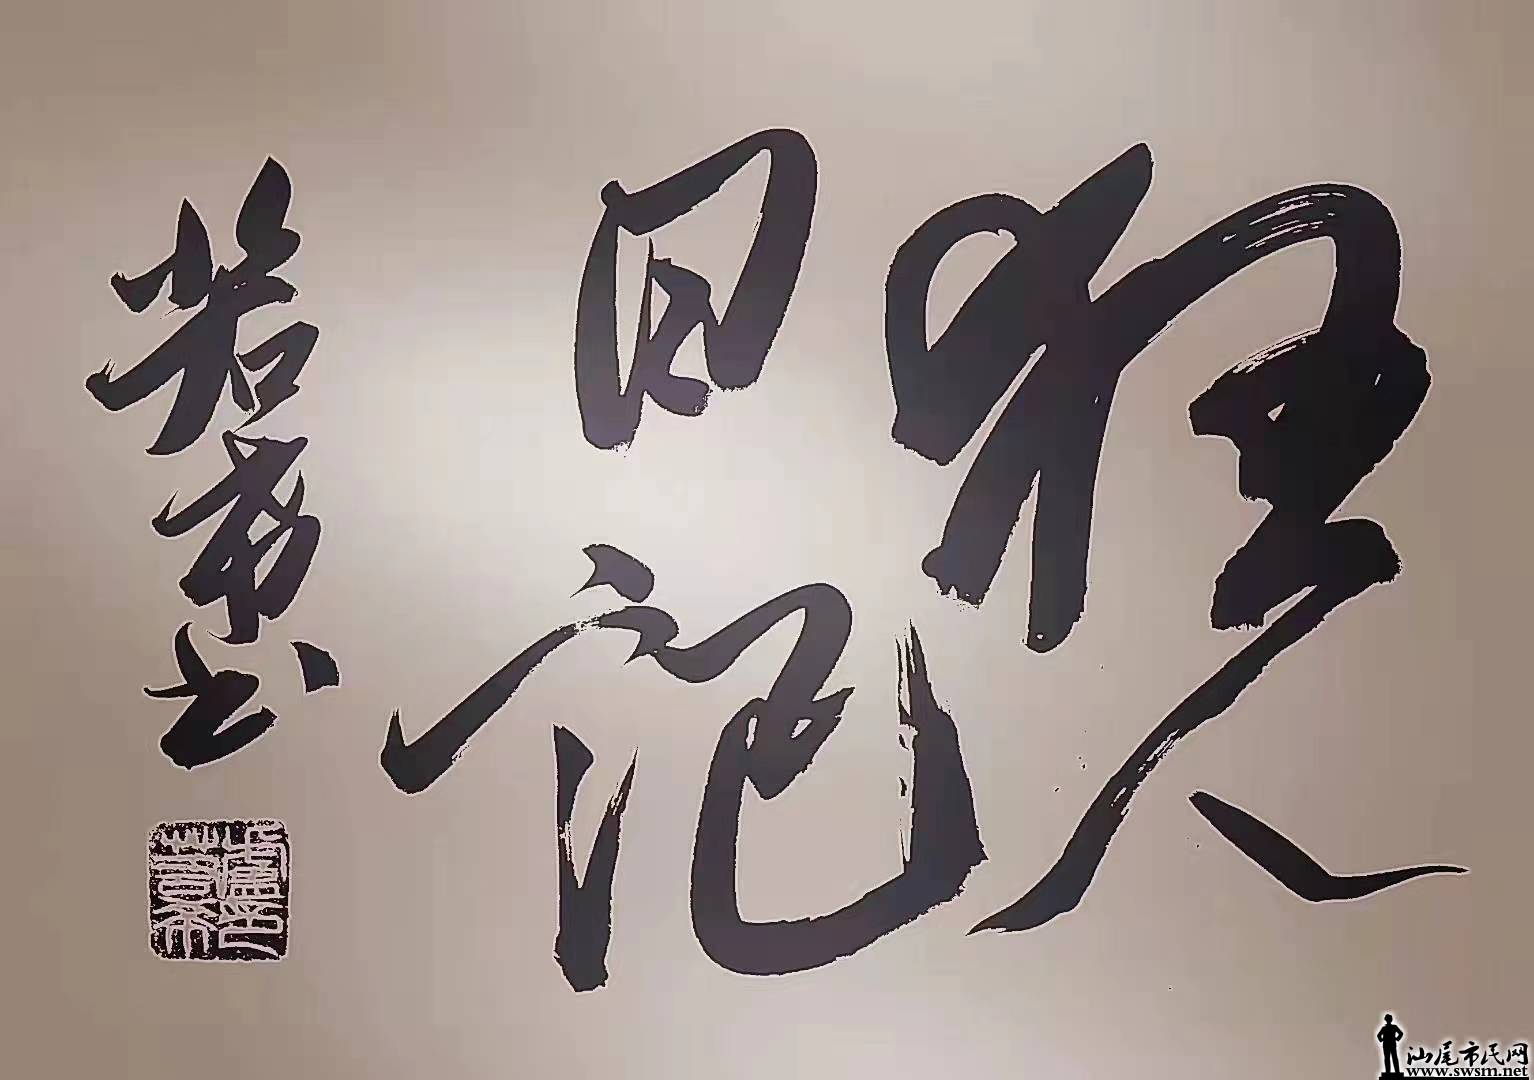 狂人
日记
若书
汕尾市民网
www.swsm.net